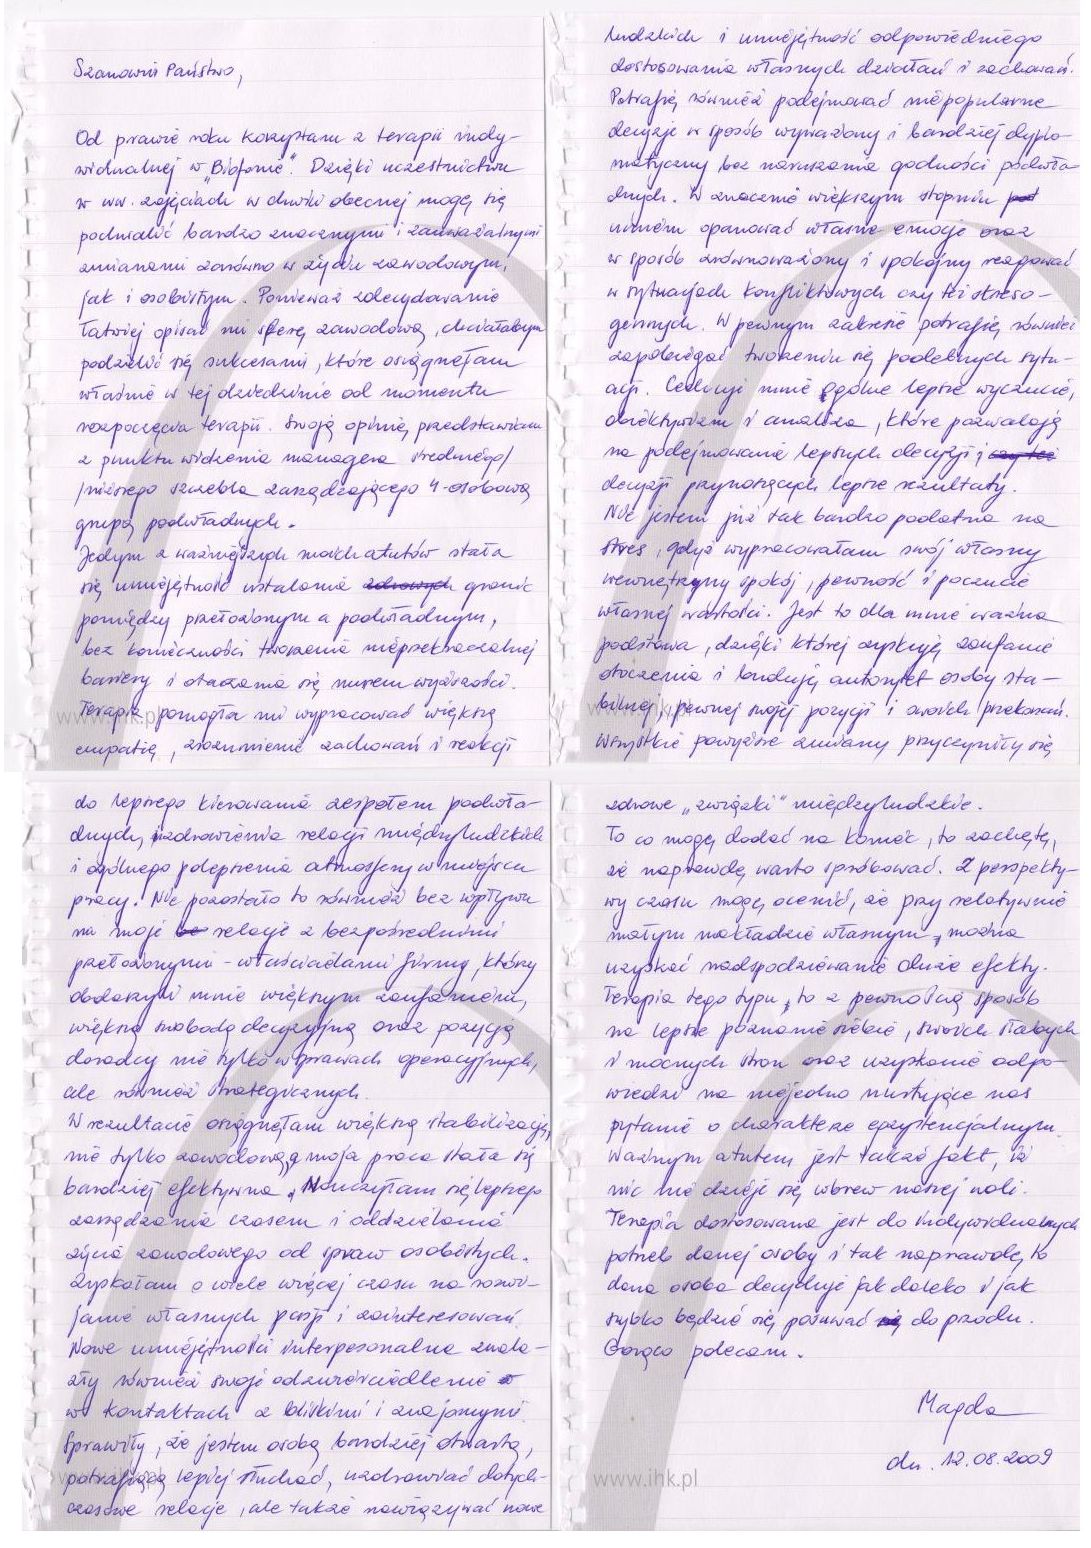 Szanowni Państwo,
Od prawie roku korzystam z terapii indy-
widualnej w „Biofonie". Dzięki uczestnictwu
w ww. zajęciach w chwili obecnej mogę się
pochwalić bardzo znacznymi i zauważalnymi
zmianami zarówno w życiu zawodowym,
jak i osobistym. Ponieważ zdecydowanie
łatwiej opisać mi sferę zawodową, chciałabym
podzielić się sukcesami, które osiągnęłam
właśnie w tej dziedzinie od momentu
rozpoczęcia terapii. Swoją opinię przedstawiam
z punktu widzenia managera średniego/
/niższego szczebla zarządzającego 4-osobową
grupą podwładnych.
Jednym z ważniejszych moich atutów stała
się umiejętność ustalania zdrowych granic
pomiędzy przełożonym a podwładnym,
bez konieczności tworzenia nieprzekraczalnej
bariery i otaczania się murem wyższości.
Terapia pomogła mi wypracować większą
empatię, zrozumienie zachowań i reakcji
www.ihk.pl
ludzkich i umiejętność odpowiedniego
dostosowania własnych działań i zachowań.
Potrafię również podejmować niepopularne
decyzje w sposób wyważony i bardziej dyplo-
matyczny bez naruszania godności podwła-
dnych. W znacznie większym stopniu
umiem opanować własne emocje oraz
w sposób zrównoważony i spokojny reagować
w sytuacjach konfliktowych czy też streso-
gennych. W pewnym zakresie potrafię również
zapobiegać tworzeniu się podobnych sytu-
acji. Cechuje mnie ogólne lepsze wyczucie,
obiektywizm i analiza, które pozwalają
na podejmowanie lepszych decyzji i czy też
decyzji przynoszących lepsze rezultaty.
Nie jestem już tak bardzo podatna na
stres, gdyż wypracowałam swój własny
wewnętrzny spokój, pewność i poczucie
własnej wartości. Jest to dla mnie ważna
podstawa, dzięki której zyskuję zaufanie
otoczenia i buduję autorytet osoby sta-
bilnej, pewnej swojej pozycji i swoich przekonań.
Wszystkie powyższe zmiany przyczyniły się
do lepszego kierowania zespołem podwła-
dnych, uzdrowienia relacji międzyludzkich
i ogólnego polepszenia atmosfery w miejscu
pracy. Nie pozostało to również bez wpływu
na moje relacje z bezpośrednimi
przełożonymi - właścicielami firmy, którzy
obdarzyli mnie większym zaufaniem,
większą swobodą decyzyjną oraz pozycją
doradcy nie tylko w sprawach operacyjnych,
ale również strategicznych.
W rezultacie osiągnęłam większą stabilizację
nie tylko zawodową, a moja praca stała się
bardziej efektywna. Nauczyłam się lepszego
zarządzania czasem i oddzielania
życia zawodowego od spraw osobistych.
Zyskałam o wiele więcej czasu na rozwi-
janie własnych pasji i zainteresowań.
Nowe umiejętności interpesonalne znala-
zły również swoje odzwierciedlenie
w kontaktach z bliskimi i znajomymi.
Sprawiły, że jestem osobą bardziej otwartą,
potrafiącą lepiej słuchać, uzdrawiać dotych-
czasowe relacje, ale także nawiązywać nowe
zdrowe „związki" międzyludzkie.
To co mogę dodać na koniec, to zachętę,
że naprawdę warto spróbować. Z perspekty-
wy czasu mogę ocenić, że przy relatywnie
małym nakładzie własnym, można
uzyskać nadspodziewanie duże efekty.
Terapia tego typu, to z pewnością sposób
na lepsze poznanie siebie, swoich słabych
i mocnych stron oraz uzyskanie odpo-
wiedzi na niejedno nurtujące nas
pytanie o charakterze egzystencjalnym.
Ważnym atutem jest także fakt, iż
nic nie dzieje się wbrew naszej woli.
Terapia dostosowana jest do indywidualnych
potrzeb danej osoby i tak naprawdę to
dana osoba decyduje jak daleko i jak
szybko będzie się posuwać się do przodu.
Gorąco polecam.
Magda
dn. 12.08.2009
www.ihk.pl